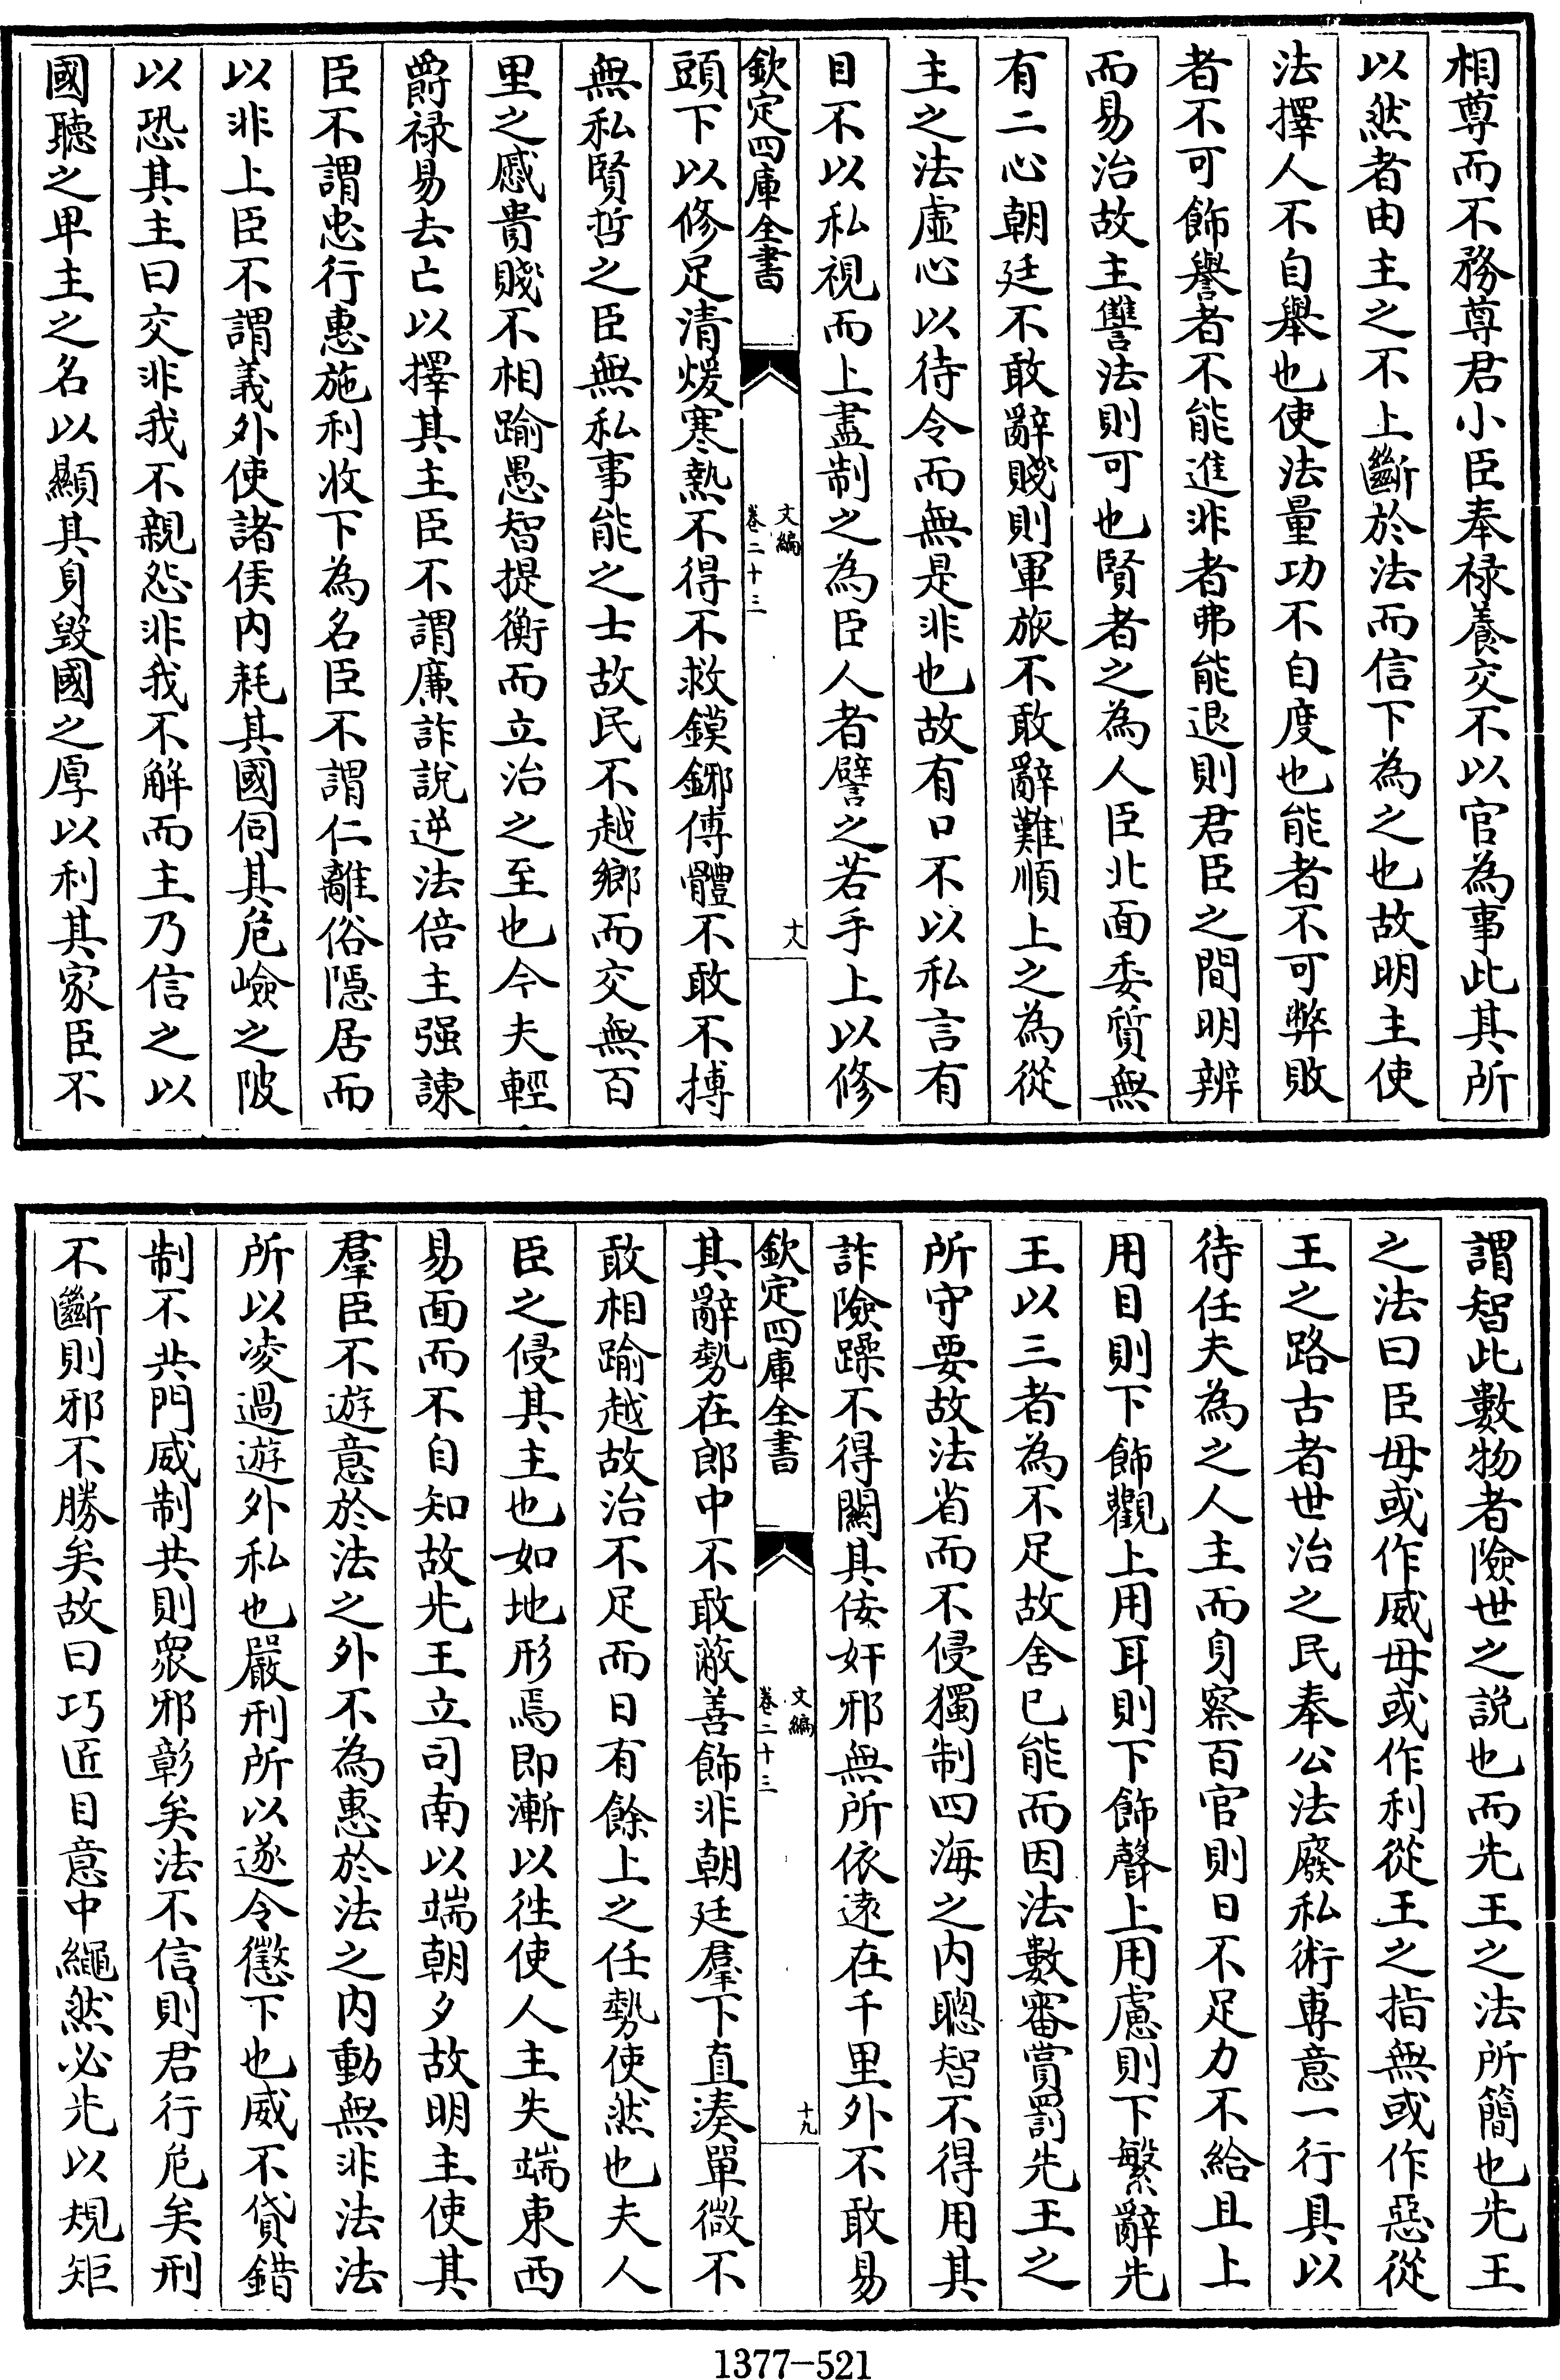 相尊而不務尊君小臣奉禄養交不以官為事此其所
以然者由主之不上斷於法而信下為之也故明主使
法擇人不自舉也使法量功不自度也能者不可弊敗
者不可飾譽者不能進非者弗能退則君臣之間明辨
而易治故主讐法則可也賢者之為人臣北面委質無
有二心朝廷不敢辭賤則軍旅不敢辭難順上之為從
主之法虛心以待令而無是非也故有口不以私言有
目不以私視而上盡制之為臣人者譬之若手上以修
欽定四庫全書
文編
卷二十三
十八
頭下以修足清煖寒熱不得不救鏌鋣傅體不敢不搏
無私賢哲之臣無私事能之士故民不越鄉而交無百
里之慼貴賤不相踰愚智提衡而立治之至也今夫輕
爵禄易去亡以擇其主臣不謂廉詐說逆法倍主强諫
臣不謂忠行惠施利收下為名臣不謂仁離俗隱居而
以非上臣不謂義外使諸侯内耗其國伺其危嶮之陂
以恐其主曰交非我不親怨非我不解而主乃信之以
國聽之卑主之名以顯其身毁國之厚以利其家臣不
謂智此數物者險世之説也而先王之法所簡也先王
之法曰臣毋或作威毋或作利從王之指無或作惡從
王之路古者世治之民奉公法廢私術専意一行具以
待任夫為之人主而身察百官則日不足力不給且上
用目則下飾觀上用耳則下飾聲上用慮則下繁辭先
王以三者為不足故舍已能而因法數審賞罰先王之
所守要故法省而不侵獨制四海之内聰智不得用其
詐險躁不得關其佞奸邪無所依遠在千里外不敢易
欽定四庫全書
文編
卷二十三
十九
其辭勢在郎中不敢蔽善飾非朝廷羣下直湊單微不
敢相踰越故治不足而日有餘上之任勢使然也夫人
臣之侵其主也如地形焉即漸以徃使人主失端東西
易面而不自知故先王立司南以端朝夕故明主使其
羣臣不遊意於法之外不為惠於法之内動無非法法
所以凌過遊外私也嚴刑所以遂令懲下也威不貸錯
制不共門威制共則衆邪彰矣法不信則君行危矣刑
不斷則邪不勝矣故曰巧匠目意中繩然必先以規矩
1377-521